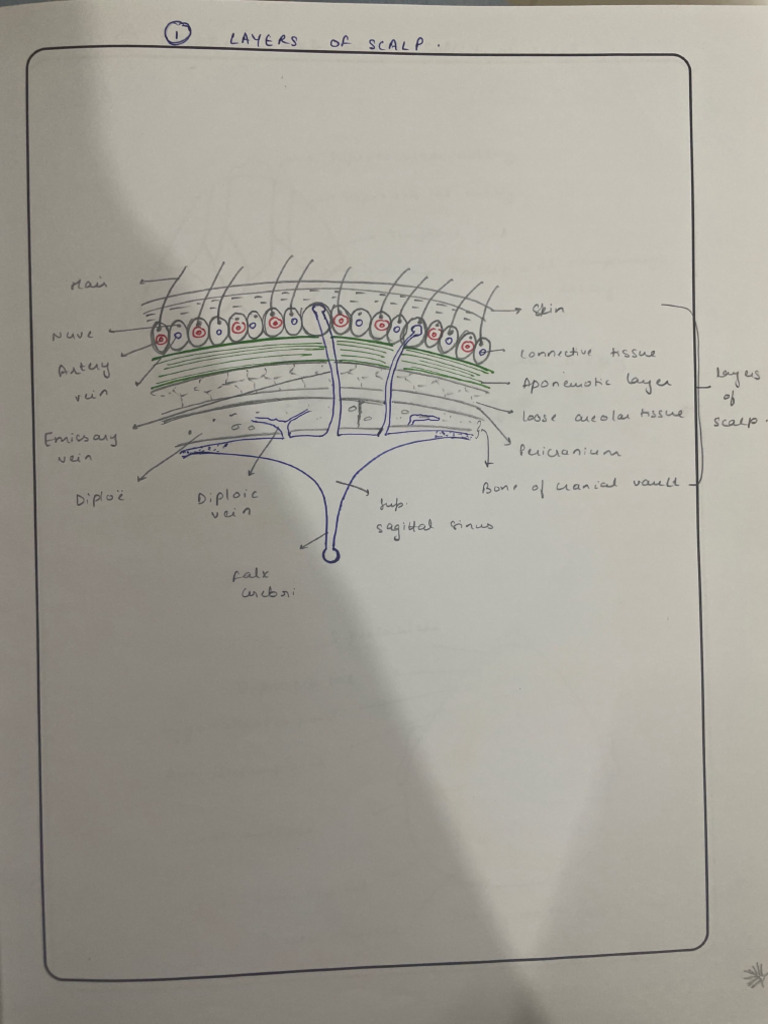 ① LAYERS OF SCALP.
Hair
Nerve
Artery
vein
Emissary
vein
Diploë
Diploic
vein
falx
cerebri
Sup.
sagittal sinus
Skin
connective tissue
Aponeurotic layer
loose areolar tissue
Pericranium
Bone of cranial vault
layers
of
scalp.